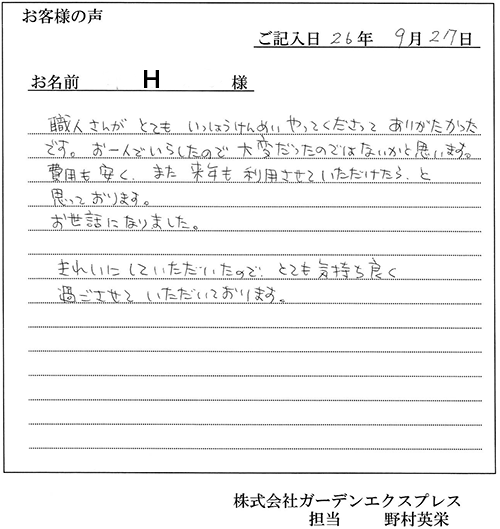 お客様の声
ご記入日 26年 9月27日
お名前 H 様
職人さんが とても いっしょうけんめい やってくださって ありがたかった
です。お一人でいらしたので 大変だったのではないかと思います。
費用も安く、また 来年も 利用させていただけたら、と
思っております。
お世話になりました。
きれいにしていただいたので、とても気持ち良く
過ごさせて いただいております。
株式会社ガーデンエクスプレス
担当 野村英栄